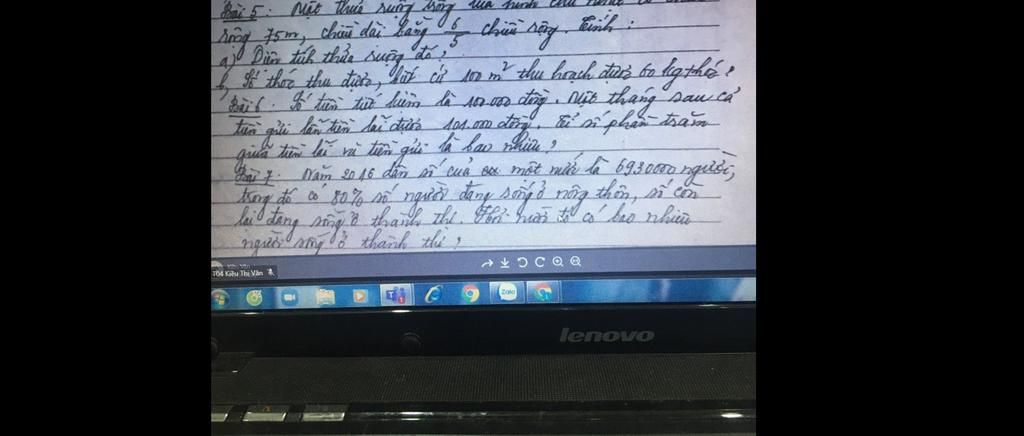 Bài 5: Một thửa ruộng trồng lúa hình chữ nhật có chiều
rộng 75m, chiều dài bằng 6/5 chiều rộng. Tính:
a) Diện tích thửa ruộng đó?
b, Số thóc thu được, biết cứ 100 m² thu hoạch được 60 kg thóc?
Bài 6. Số tiền tiết kiệm là 100.000 đồng. Một tháng sau cả
tiền gửi lẫn tiền lãi được 101.000 đồng. Tỉ số phần trăm
giữa tiền lãi và tiền gửi là bao nhiêu?
Bài 7. Năm 2016 dân số của một nước là 6930000 người,
trong đó có 80% số người đang sống ở nông thôn, số còn
lại đang sống ở thành thị. Hỏi nước đó có bao nhiêu
người sống ở thành thị?
T04 Kiều Thị Vân
Zalo
lenovo